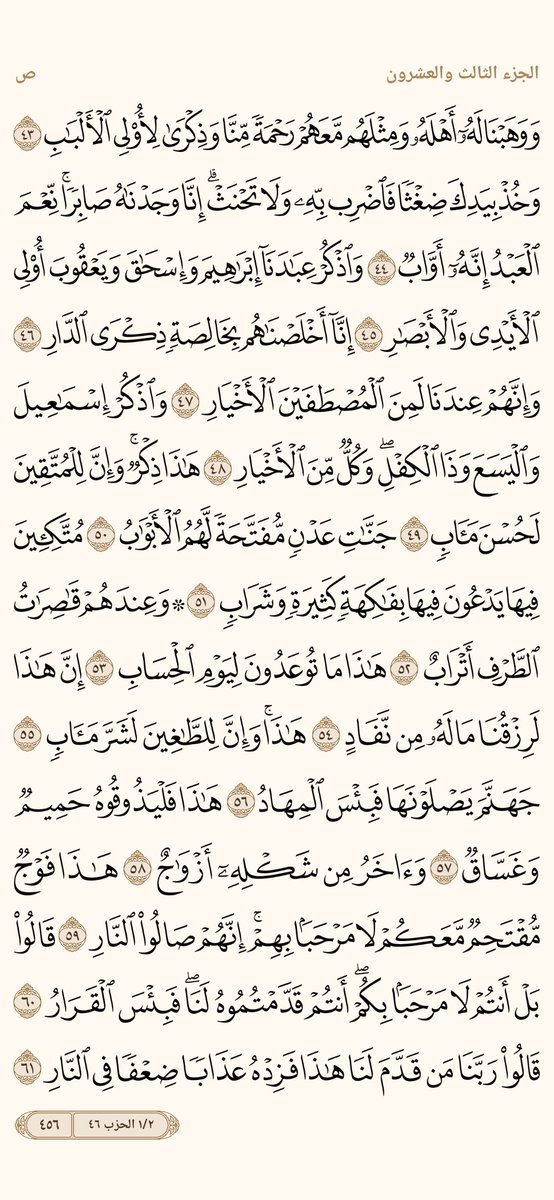 الجزء الثالث والعشرون
ص
وَوَهَبۡنَا لَهُۥٓ أَهۡلَهُۥ وَمِثۡلَهُم مَّعَهُمۡ رَحۡمَةٗ مِّنَّا وَذِكۡرَىٰ لِأُوْلِي ٱلۡأَلۡبَٰبِ ٤٣
وَخُذۡ بِيَدِكَ ضِغۡثٗا فَٱضۡرِب بِّهِۦ وَلَا تَحۡنَثۡۗ إِنَّا وَجَدۡنَٰهُ صَابِرٗاۚ نِّعۡمَ
ٱلۡعَبۡدُ إِنَّهُۥٓ أَوَّابٞ ٤٤ وَٱذۡكُرۡ عِبَٰدَنَآ إِبۡرَٰهِيمَ وَإِسۡحَٰقَ وَيَعۡقُوبَ أُوْلِي
ٱلۡأَيۡدِي وَٱلۡأَبۡصَٰرِ ٤٥ إِنَّآ أَخۡلَصۡنَٰهُم بِخَالِصَةٖ ذِكۡرَى ٱلدَّارِ ٤٦
وَإِنَّهُمۡ عِندَنَا لَمِنَ ٱلۡمُصۡطَفَيۡنَ ٱلۡأَخۡيَارِ ٤٧ وَٱذۡكُرۡ إِسۡمَٰعِيلَ
وَٱلۡيَسَعَ وَذَا ٱلۡكِفۡلِۖ وَكُلّٞ مِّنَ ٱلۡأَخۡيَارِ ٤٨ هَٰذَا ذِكۡرٞۚ وَإِنَّ لِلۡمُتَّقِينَ
لَحُسۡنَ مَـَٔابٖ ٤٩ جَنَّٰتِ عَدۡنٖ مُّفَتَّحَةٗ لَّهُمُ ٱلۡأَبۡوَٰبُ ٥٠ مُتَّكِـِٔينَ
فِيهَا يَدۡعُونَ فِيهَا بِفَٰكِهَةٖ كَثِيرَةٖ وَشَرَابٖ ٥١ ۞ وَعِندَهُمۡ قَٰصِرَٰتُ
ٱلطَّرۡفِ أَتۡرَابٌ ٥٢ هَٰذَا مَا تُوعَدُونَ لِيَوۡمِ ٱلۡحِسَابِ ٥٣ إِنَّ هَٰذَا
لَرِزۡقُنَا مَا لَهُۥ مِن نَّفَادٍ ٥٤ هَٰذَاۚ وَإِنَّ لِلطَّٰغِينَ لَشَرَّ مَـَٔابٖ ٥٥
جَهَنَّمَ يَصۡلَوۡنَهَا فَبِئۡسَ ٱلۡمِهَادُ ٥٦ هَٰذَا فَلۡيَذُوقُوهُ حَمِيمٞ
وَغَسَّاقٞ ٥٧ وَءَاخَرُ مِن شَكۡلِهِۦٓ أَزۡوَٰجٌ ٥٨ هَٰذَا فَوۡجٞ
مُّقۡتَحِمٞ مَّعَكُمۡ لَا مَرۡحَبَۢا بِهِمۡۚ إِنَّهُمۡ صَالُواْ ٱلنَّارِ ٥٩ قَالُواْ
بَلۡ أَنتُمۡ لَا مَرۡحَبَۢا بِكُمۡۖ أَنتُمۡ قَدَّمۡتُمُوهُ لَنَاۖ فَبِئۡسَ ٱلۡقَرَارُ ٦٠
قَالُواْ رَبَّنَا مَن قَدَّمَ لَنَا هَٰذَا فَزِدۡهُ عَذَابٗا ضِعۡفٗا فِي ٱلنَّارِ ٦١
١/٢ الحزب ٤٦
٤٥٦